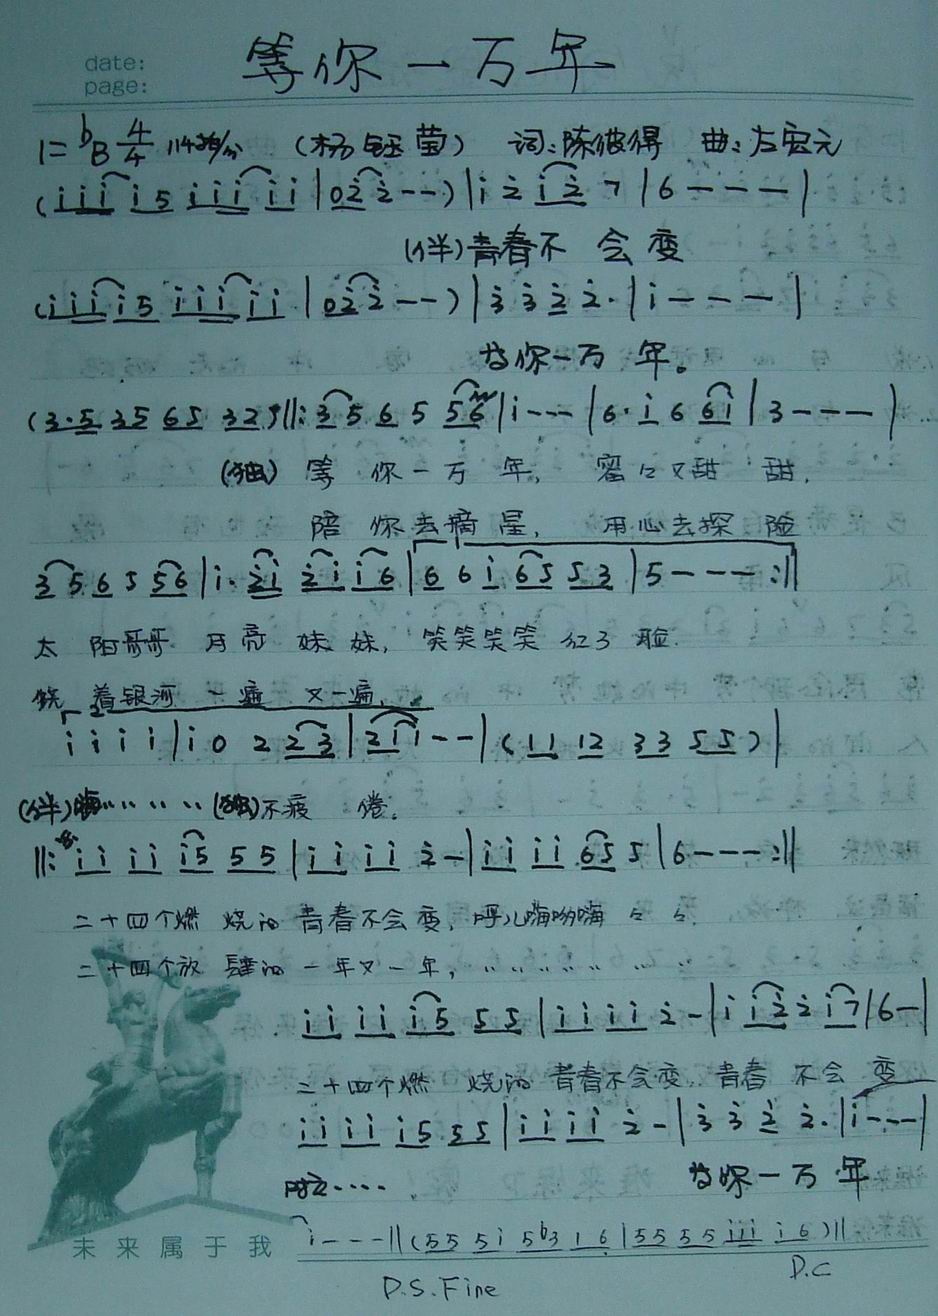 date:
page:
等你一万年
1=ᵇB 4/4 114拍/分 (杨钰莹) 词:陈彼得 曲:左宏元
(i i i i 5 i i i i i | 0 2 2 - -) | i 2 i 2 7 | 6 - - - |
(伴)青春不会变
(i i i i 5 i i i i i | 0 2 2 - -) | 3 3 2 2· | i - - - |
为你一万年。
(3·5 35 65 32) ||: 3 5 6 5 56 | i - - - | 6· i 6 6i | 3 - - - |
(独) 等你一万年, 蜜々又甜甜.
陪你去摘星, 用心去探险
3 5 6 5 56 | i· 2i 2i i6 | 6 6 i 65 53 | 5 - - - :||
太阳哥哥 月亮妹妹, 笑笑笑笑红了脸.
绕着银河一遍又一遍,
i i i i | i 0 2 23 | 2ii - - | (11 12 33 55) |
(伴)嗨〃〃〃 (独)不疲倦。
||: ii ii i5 55 | ii ii 2 - | ii ii 65 5 | 6 - - - :||
二十四个燃烧的青春不会变, 呼儿嗨哟嗨々々.
二十四个放肆的一年又一年, 〃〃〃〃〃〃〃
ii ii i5 55 | ii ii 2 - | i i2 2 i7 | 6 -
二十四个燃烧的青春不会变. 青春不会变
ii ii i5 55 | ii ii 2 - | 3 3 2 2· | i - - - |
为你一万年
i - - - || (55 5i 5ᵇ3 16 | 55 55 iii i6) ||
未来属于我
D.C
D.S.Fine